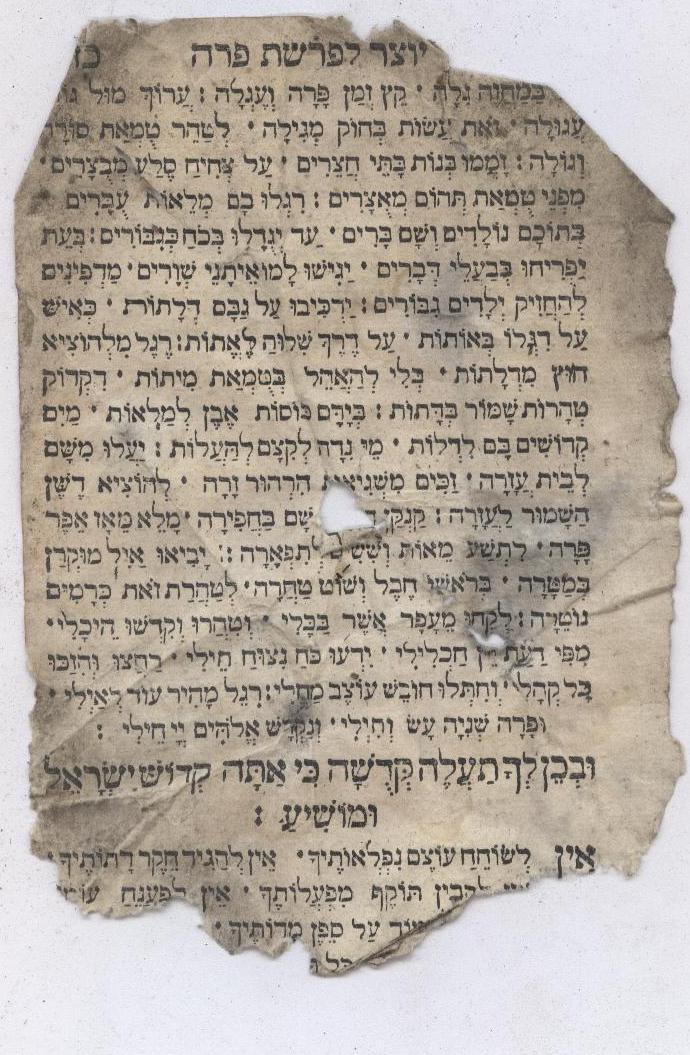 יוצר לפרשת פרה
בְּמַחֲזֶה נִגְלָה · קֵץ זְמַן פָּרָה וְעֶגְלָה : עֲרוֹךְ מוּל
עֲגוּלָה · זֹאת עֲשׂוֹת בְּחוֹק מְגִילָה · לְטַהֵר טֻמְאַת
וְגוֹלָה : זָמְמוּ בְּנוֹת בָּתֵּי חֲצֵרִים · עַל צְחִיחַ סֶלַע מִבְצָרִים ·
מִפְּנֵי טֻמְאַת תְּהוֹם מְאֻצָּרִים : רִגְּלוּ בָם מְלֵאוֹת עֻבָּרִים
בְּתוֹכָם נוֹלָדִים וְשָׁם כָּרִים · עַד יִגְדְּלוּ בְּכֹחַ כְּגִבּוֹרִים : בְּעֵת
יַפְרִיחוּ בְּבַעֲלֵי דְבָרִים · יַגִּישׁוּ לָמוֹ אֵיתָנֵי שְׁוָרִים · מַדְפִּינִים
לְהַחֲזִיק יְלָדִים גִּבּוֹרִים : יַרְכִּיבוּ עַל גַּבָּם דְּלָתוֹת · כְּאִישׁ
עַל דִּגְלוֹ בְּאוֹתוֹת · עַל דֶּרֶךְ שִׁלּוּחַ לַאֲתוֹת : רֶגֶל מִלְּהוֹצִיא
חוּץ מִדְּלָתוֹת · בְּלִי לְהַאֲהֵל בְּטֻמְאַת מִיתוֹת · דִּקְדּוֹק
טְהָרוֹת שָׁמוֹר בְּדָתוֹת : בְּיָדָם כּוֹסוֹת אֶבֶן לְמַלְאוֹת · מַיִם
קְדוֹשִׁים בָּם לִדְלוֹת · מֵי נִדָּה לְקִצָּם לְהַעֲלוֹת : יַעֲלוּ מִשָּׁם
לְבֵית עֲזָרָה · זַכִּים מִשְּׁגִיאַת הִרְהוּר זָרָה · לְהוֹצִיא דֶּשֶׁן
הַשָּׁמוּר לַעֲזָרָה : קַנְקַן שָׁם בַּחֲפִירָה · מָלֵא מֵאָז אֵפֶר
פָּרָה · לִתְשַׁע מֵאוֹת וְשִׁשִּׁים לְתִפְאָרָה : יָבִיאוּ אַיִל מוּקְרָן
בְּמַטָּרָה · בְּרֹאשׁוֹ חֶבֶל וְשׁוֹט טַחֲרָה · לְטָהֳרַת זֹאת כְּרָמִים
נוֹטֵרָה : לְקָחוֹ מֵעָפָר אֲשֶׁר בַּכְּלִי · וְטִהֲרוּ וְקִדְּשׁוּ הֵיכָלִי ·
מִפִּי דַעַת יֵין חַכְלִילִי · יֵדְעוּ כֹּחַ נִצּוּחַ חֵילִי · רַחֲצוּ וְהִזַּכּוּ
כָּל קְהָלִי · וְחִתְּלוּ חוֹבֵשׁ עוֹצֶב מַחֲלִי : רֶגֶל מָהִיר עוֹד לְאֵילִי ·
וּפָרָה שְׁנִיָּה עָשׂ וְחִילִי · וְנִקְדָּשׁ אֱלֹהִים יְיָ חֵילִי :
וּבְכֵן לְךָ תַעֲלֶה קְדֻשָּׁה כִּי אַתָּה קְדוֹשׁ יִשְׂרָאֵל
וּמוֹשִׁיעַ :
אֵין לְשׂוֹחֵחַ עוֹצֶם נִפְלְאוֹתֶיךָ · אֵין לְהַגִּיד חֵקֶר דָּתוֹתֶיךָ ·
לְהָבִין תּוֹקֶף מִפְעֲלוֹתֶיךָ · אֵין לְפַעְנֵחַ
עַל סֵפֶן מִדּוֹתֶיךָ ·